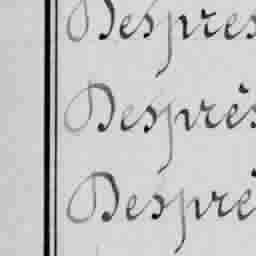 Despres
Desprès
Desprè